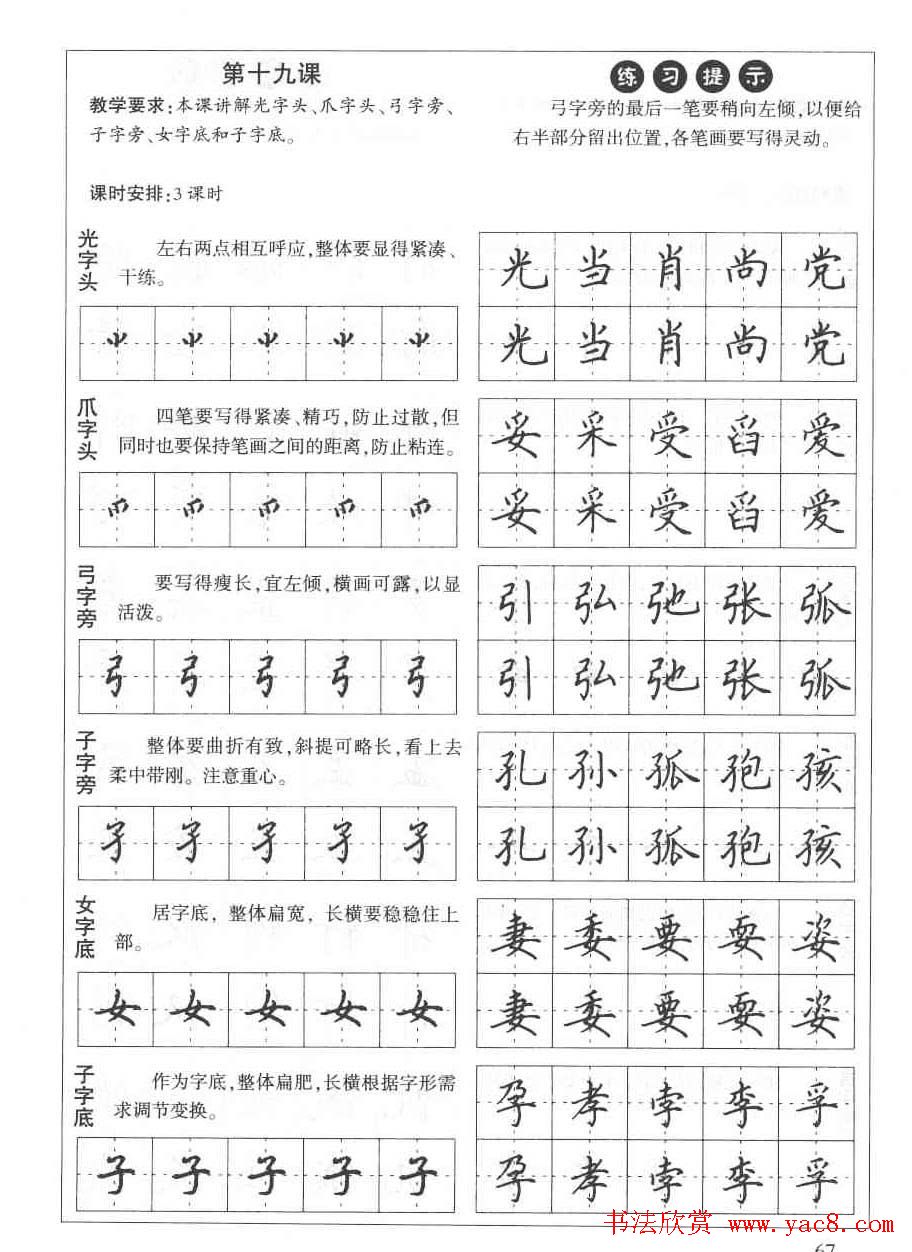 第十九课
教学要求:本课讲解光字头、爪字头、弓字旁、
子字旁、女字底和子字底。
课时安排:3课时
练习提示
弓字旁的最后一笔要稍向左倾,以便给
右半部分留出位置,各笔画要写得灵动。
光字头
左右两点相互呼应,整体要显得紧凑、
干练。
⺌ ⺌ ⺌ ⺌ ⺌
光 当 肖 尚 党
光 当 肖 尚 党
爪字头
四笔要写得紧凑、精巧,防止过散,但
同时也要保持笔画之间的距离,防止粘连。
爫 爫 爫 爫 爫
妥 采 受 舀 爱
妥 采 受 舀 爱
弓字旁
要写得瘦长,宜左倾,横画可露,以显
活泼。
弓 弓 弓 弓 弓
引 弘 弛 张 弧
引 弘 弛 张 弧
子字旁
整体要曲折有致,斜提可略长,看上去
柔中带刚。注意重心。
孑 孑 孑 孑 孑
孔 孙 孤 孢 孩
孔 孙 孤 孢 孩
女字底
居字底,整体扁宽,长横要稳稳住上
部。
女 女 女 女 女
妻 委 要 耍 姿
妻 委 要 耍 姿
子字底
作为字底,整体扁肥,长横根据字形需
求调节变换。
子 子 子 子 子
孕 孝 孛 李 孚
孕 孝 孛 李 孚
书法欣赏 www.yac8.com
67